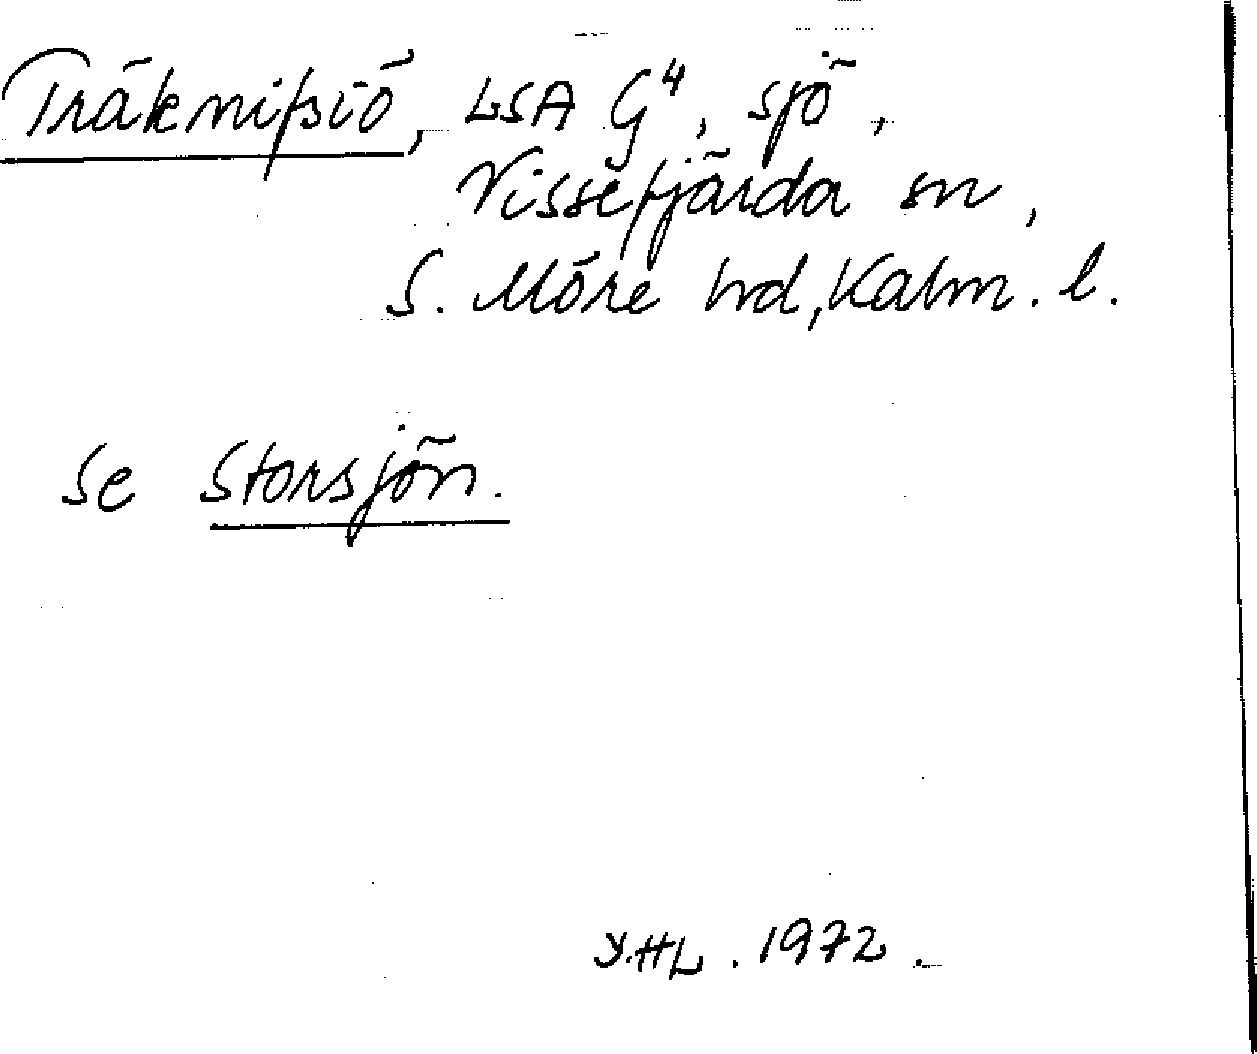 Träknifsiö, LSA G⁴, sjö,
Vissefjärda sn,
S. Möre hd, Kalm. l.
se Storsjön.
Y.HL. 1972.